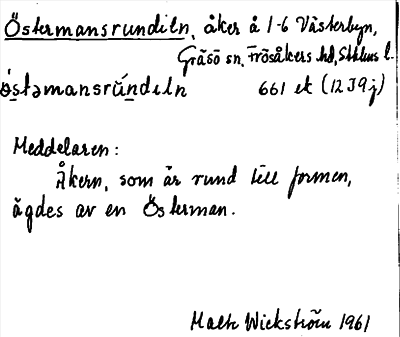 Östermansrundiln, åker å 1-6 Västerbyn,
Gräsö sn, Frösåkers hd, Sthlms l.
ǿstəmansrŭ́ndɩln 661 ek (12 I 9 j)
Meddelaren:
Åkern, som är rund till formen,
ägdes av en Österman.
Malte Wickström 1961